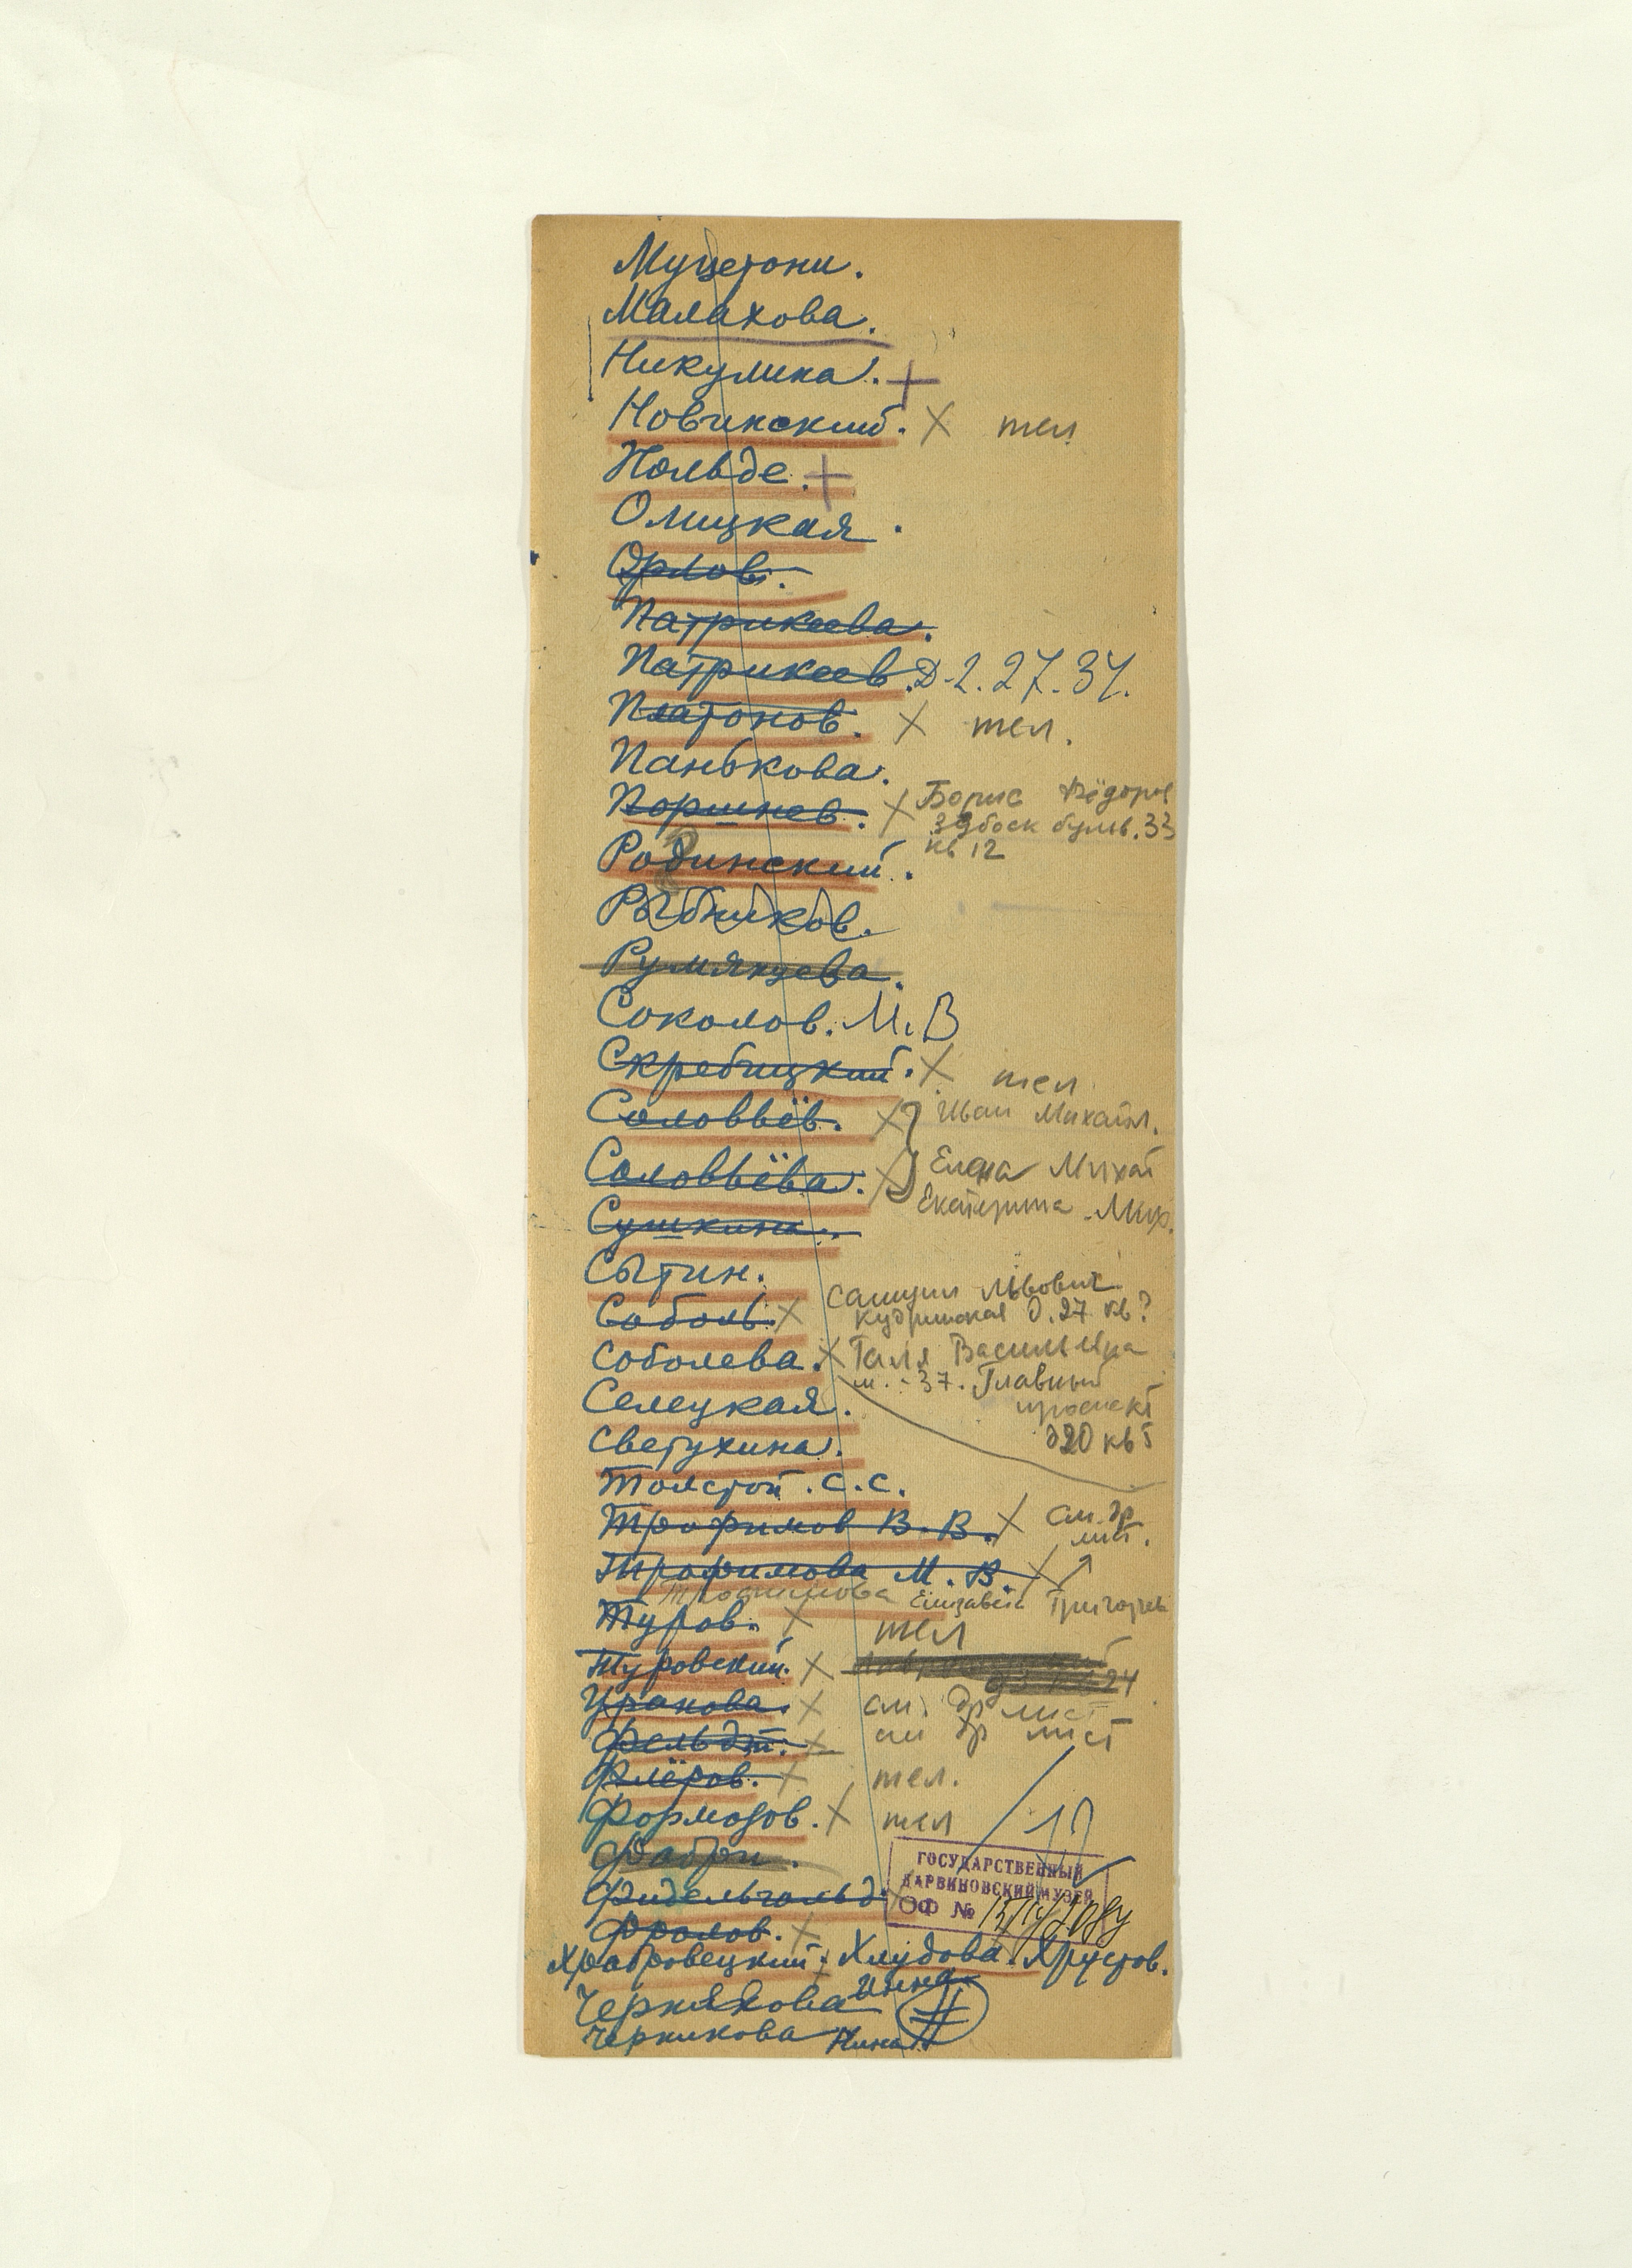 Муцетони.
Малахова.
Никулина. +
Новинский. × тел
Нольде. +
Олицкая.
Орлов.
Патрикеева.
Патрикеев. Д-2. 27. 34.
Платонов. × тел.
Панькова.
Поршнев. × Борис Фёдоров
бульв. 33
кв 12
Родинский.
Рыбников.
Румянцева.
Соколов. М. В
Скребицкий. × тел
Соловьёв. × Иван Михайл.
Соловьёва. × Елена Михай
Екатерина Мих.
Сушкина.
Сытин.
Соболь. × Самуил Львович
Кудринская д. 27 кв?
Соболева. × Галя Васильевна
м. - 37. Главный
проспект
д 20 кв 5
Селецкая.
Светухина.
Толстой. С. С.
Трофимов В. В. × см. др
лист.
Трофимова М. В. ×
Трофимова Елизавета Григорьев
Туров. × тел
Туровский. ×
24
Уранова. × см. др лист
Фельдт. × см др лист
Флёров. × тел.
Формозов. × тел
Фабри.
ГОСУДАРСТВЕННЫЙ
ДАРВИНОВСКИЙ МУЗЕЙ
ОФ №
Фидельгольд.
Фролов. ×
Храбровецкий. Хлудова. Хрустов.
Чернякова Инна.
Черникова Нина.